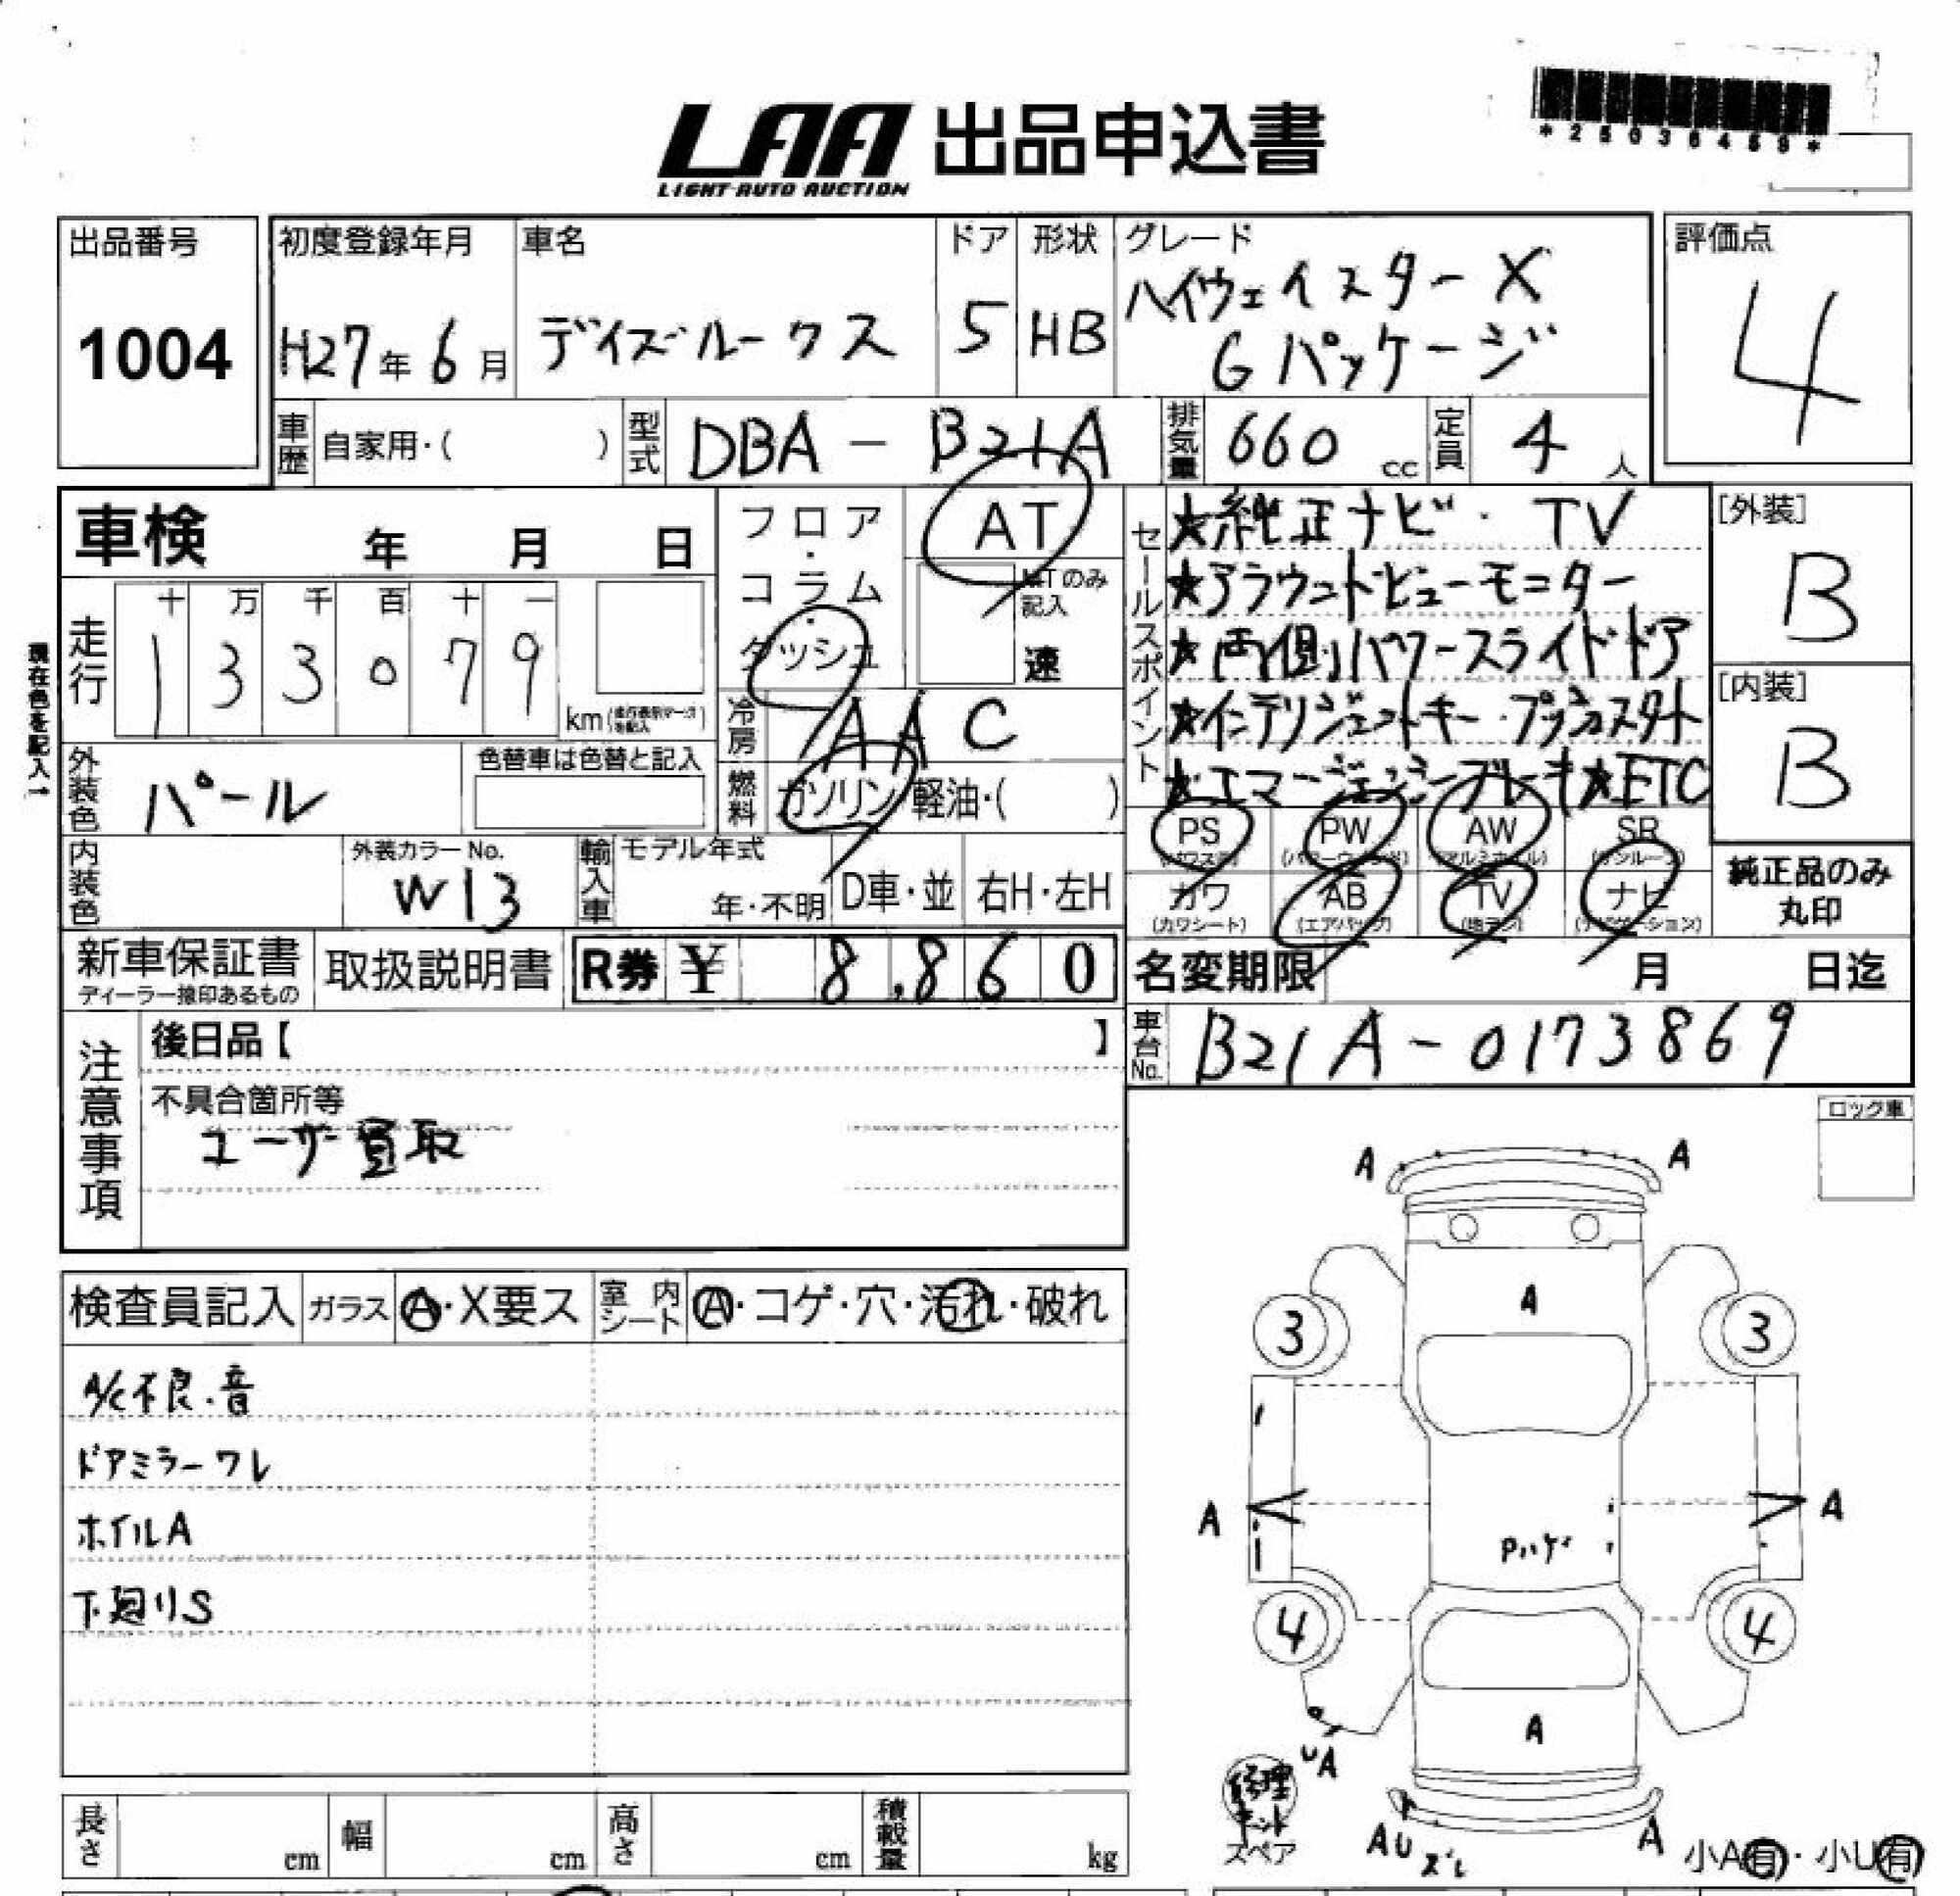 LAA 出品申込書
LIGHT AUTO AUCTION
出品番号
1004
初度登録年月
H27年6月
車名
デイズルークス
ドア
5
形状
HB
グレード
ハイウェイスターX
Gパッケージ
評価点
4
車歴 自家用・( )
型式 DBA-B21A
排気量 660 cc
定員 4 人
車検 年 月 日
フロア・コラム・ダッシュ
AT
MTのみ記入
速
走行
十 万 千 百 十 一
1 3 3 0 7 9 km
現在色を記入→
外装色 パール
色替車は色替と記入
冷房 AAC
燃料 ガソリン 軽油・( )
内装色
外装カラーNo.
W13
輸入車
モデル年式
年・不明
D車・並
右H・左H
セールスポイント
★純正ナビ・TV
★アラウンドビューモニター
★両側パワースライドドア
★インテリジェントキー・プッシュスタート
★エマージェンシーブレーキ★ETC
PS PW AW SR
(パワーウィンド) (アルミホイル) (サンルーフ)
カワ AB TV ナビ
(カワシート) (エアバッグ) (地デジ) (ナビゲーション)
[外装]
B
[内装]
B
純正品のみ
丸印
新車保証書
ディーラー捺印あるもの
取扱説明書
R券 ¥ 8,860
名変期限 月 日迄
車台No. B21A-0173869
注意事項
後日品【 】
不具合箇所等
ユーザー買取
ロック車
検査員記入
ガラス A・X要ス
室内シート A・コゲ・穴・汚れ・破れ
A/C不良.音
ドアミラーワレ
ホイルA
下廻りS
A A
A
3 3
A A
Pハゲ
4 4
A
UA
修理キット
スペア
AU ズレ
A
小A有・小U有
長さ cm
幅 cm
高さ cm
積載量 kg